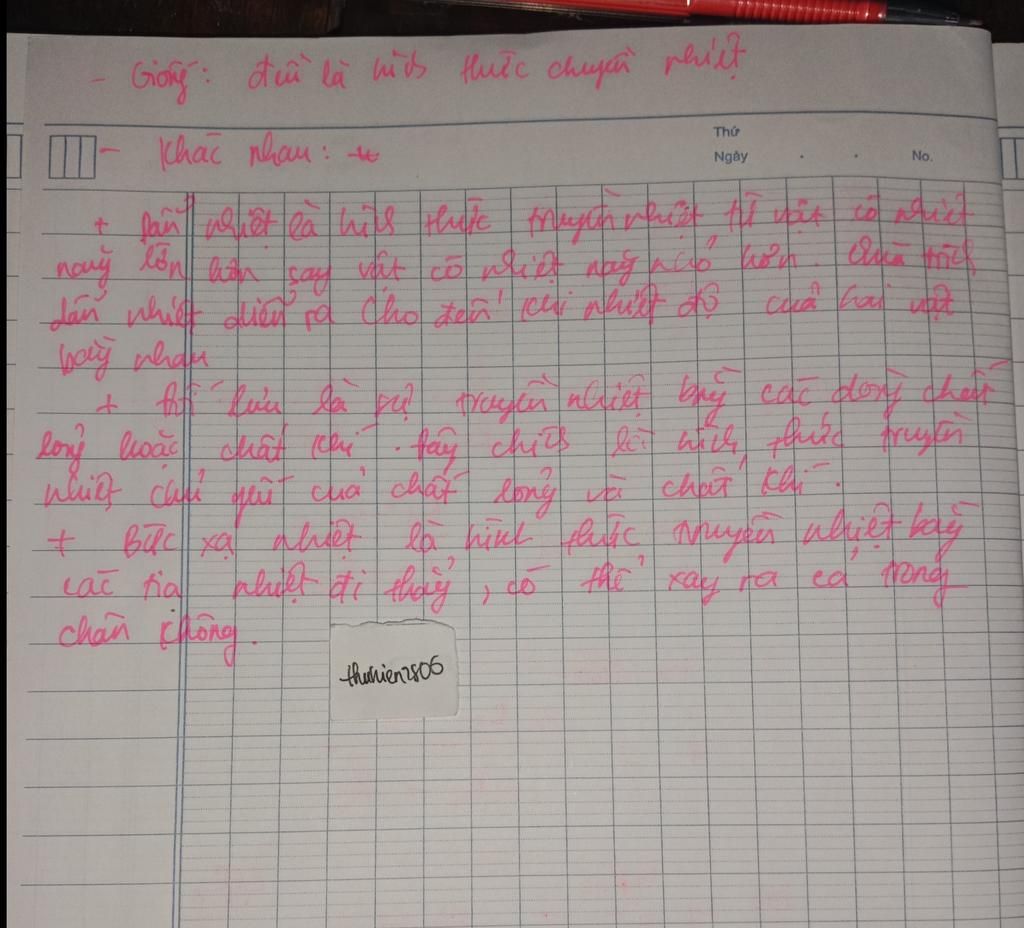 - Giống: đều là hình thức chuyền nhiệt
Thứ
Ngày . . No.
- Khác nhau:
+ Dẫn nhiệt là hình thức truyền nhiệt từ vật có nhiệt
năng lớn hơn sang vật có nhiệt năng nhỏ hơn. Quá trình
dẫn nhiệt diễn ra cho đến khi nhiệt độ của hai vật
bằng nhau
+ Đối lưu là sự truyền nhiệt bằng các dòng chất
lỏng hoặc chất khí. Đây chính là hình thức truyền
nhiệt chủ yếu của chất lỏng và chất khí.
+ Bức xạ nhiệt là hình thức truyền nhiệt bằng
các tia nhiệt đi thẳng, có thể xảy ra cả trong
chân không.
thuhien2806